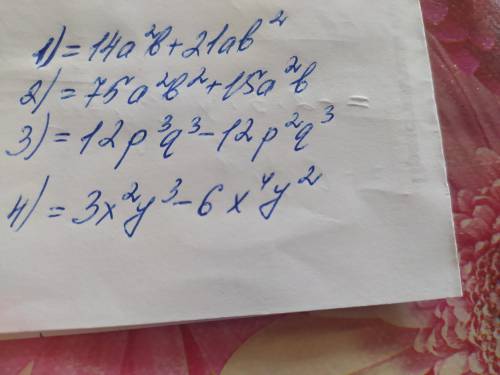 1) = 14a²b + 21ab²
2) = 75a²b² + 15a²b =
3) = 12p³q³ - 12p²q³
4) = 3x²y³ - 6x⁴y²